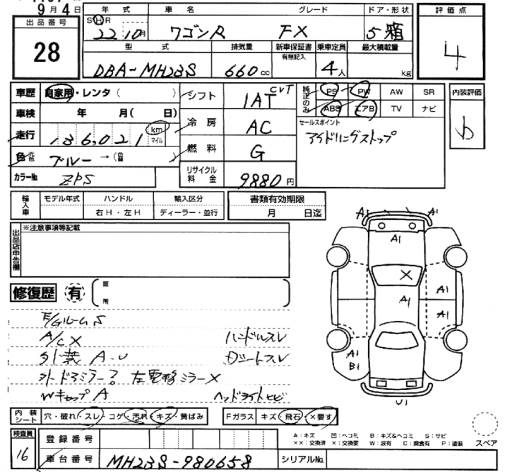 9月4日
出品番号
28
年式 車名 グレード ドア・形状
SH 22.10月 ワゴンR FX 5 箱
型式 排気量 新車保証書 有無記入 乗車定員 最大積載量
DBA-MH23S 660cc 4人 kg
評価点
4
車歴 自家用・レンタ( )
車検 年 月( 日)
走行 136,021 km マイル
色 ブルー→(
カラーNo ZPS
シフト 1AT CVT
冷房 AC
燃料 G
リサイクル料金 9880円
純正のみ PS PW AW SR
ABS エアB TV ナビ
セールスポイント
アイドリングストップ
内装評価
b
輸入車 モデル年式 ハンドル 輸入区分
右H・左H ディーラー・並行
書類有効期限
月 日迄
出品店申告欄
※注意事項等記載
修復歴 有
箇所
E/Gルーム S
A/C X ハンドルスレ
外装 A・U シートスレ
左電格ミラーX
WキャップA
A1
A1
A1
X
A1
A1
A1
A1
B1
U1
内装シート 穴・破れ・スレ・コゲ・汚れ・キズ・黄ばみ
Fガラス キズ・飛石・X要す
A:キズ U:ヘコミ B:キズ&ヘコミ S:サビ
XX:交換済 X:要交換 W:波有 C:腐食有 P:塗装
スペア
検査員
16
登録番号
車台番号 MH23S-980658 シリアルNo.